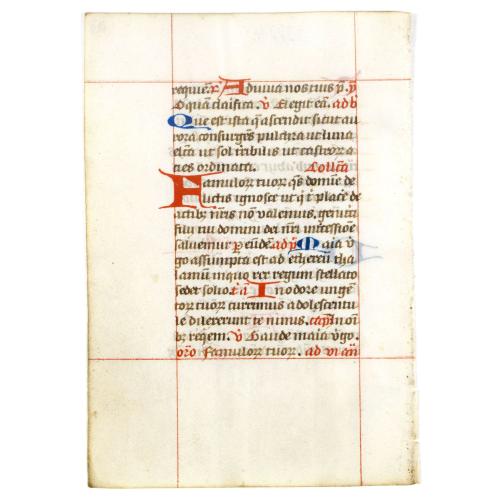 requiem.
O quam clarifica. v Elegit eam. ad b
Que est ista q ascendit sicut au
rora consurgens pulchra ut luna
electa ut sol tribilis ut castrorz a
cies ordinata. Collecta
Famulorz tuorz qs domine de
lictis ignosce ut q t placere de
actibz nris non valemus, genitri
filii tui domini dei nri intercessione
salvemur p eunde ad p Maria v
go assumpta est ad ethereum tha
lamu in quo rex regum stellato
sedet solio. In odore ungen
torz tuorz currimus adolescentu
le dilexerunt te nimis. cap In om
bz reqem. v Gaude maria v go.
oro Famulorz tuorz. ad vi an